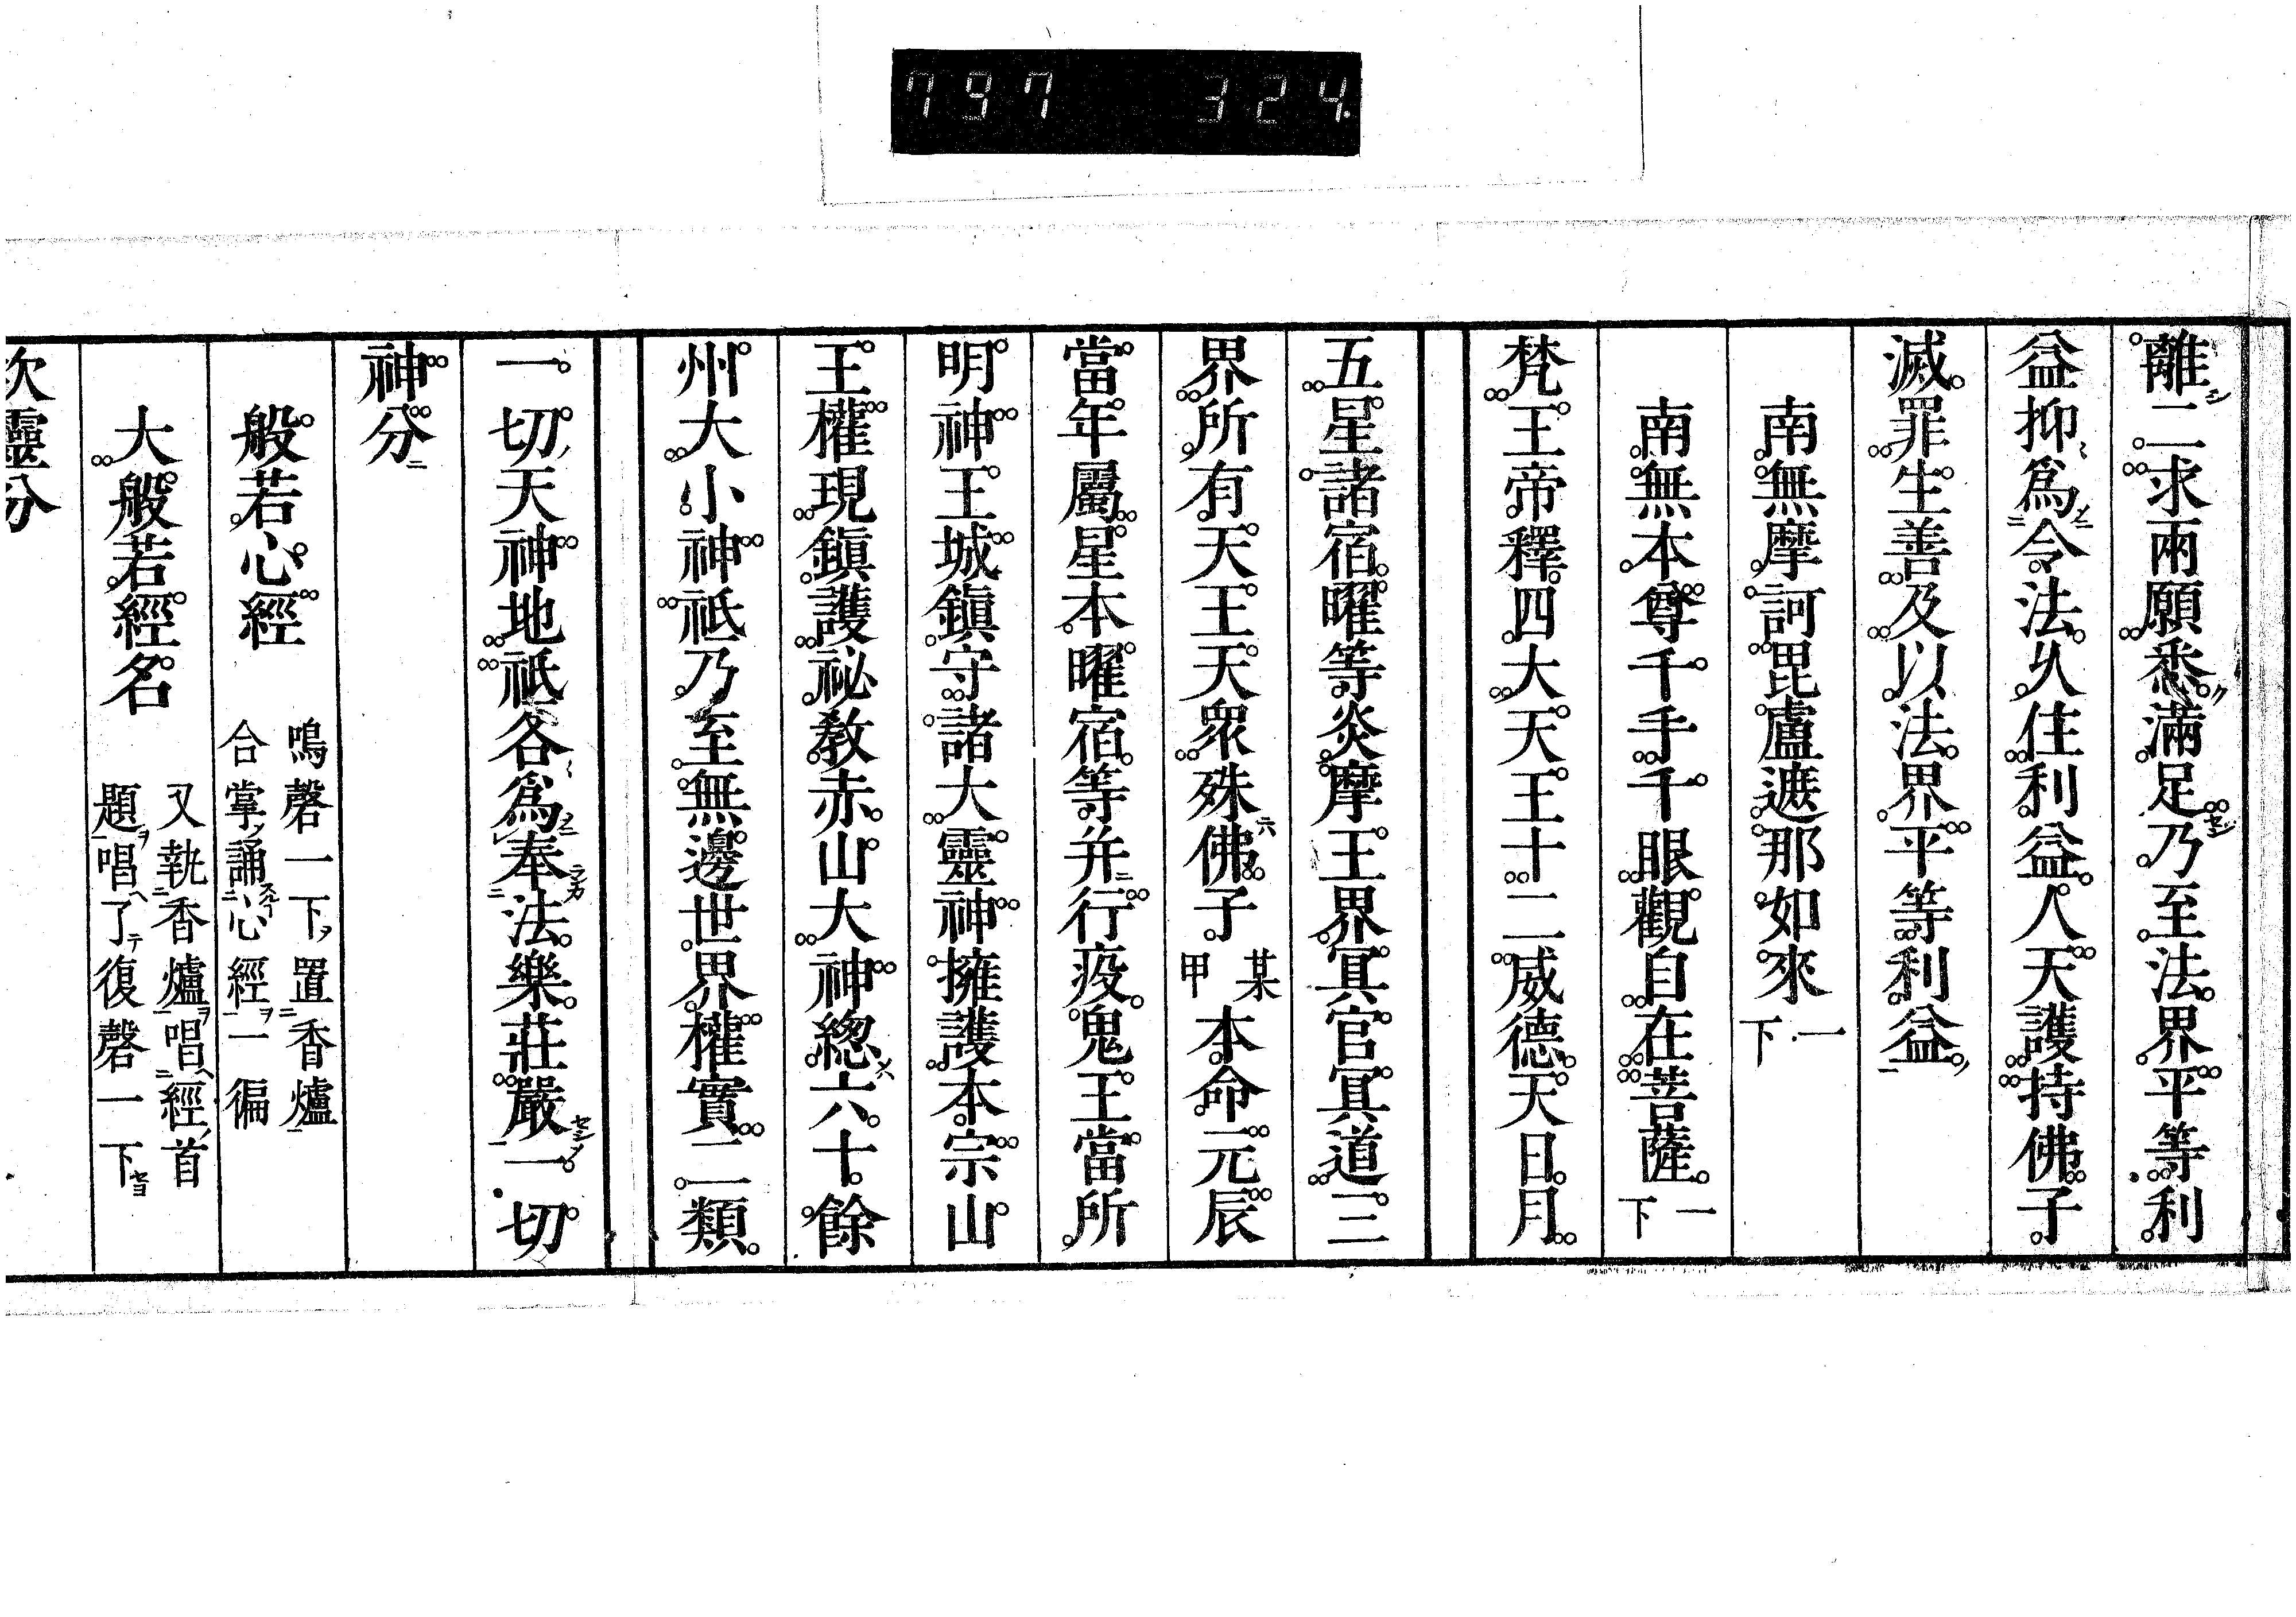 797 324.
離二求兩願悉滿足乃至法界平等利
益抑爲令法久住利益人天護持佛子
滅罪生善及以法界平等利益
南無摩訶毘盧遮那如來 一下
南無本尊千手千眼觀自在菩薩 一下
梵王帝釋四大天王十二威德天日月
五星諸宿曜等炎摩王界冥官冥道三
界所有天王天衆殊佛子 某甲 本命元辰
當年屬星本曜宿等并行疫鬼王當所
明神王城鎭守諸大靈神擁護本宗山
王權現鎭護祕敎赤山大神總六十餘
州大小神祇乃至無邊世界權實二類
一切天神地祇各爲奉法樂莊嚴一切
神分
般若心經 鳴磬一下置香爐
合掌誦心經一徧
大般若經名 又執香爐唱經首
題唱了復磬一下
次靈分